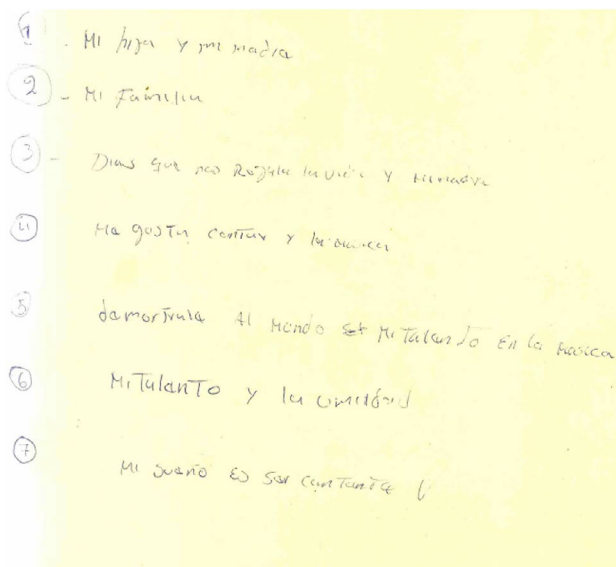 1. Mi hija y mi madre
2 - Mi Familia
3 - Dios que nos Regala la vida y mi madre
4 Me gusta cantar y la musica
5 demostrale Al Mundo Mi Talento En la musica
6 Mi Talento y la umildad
7 Mi sueño es ser cantante